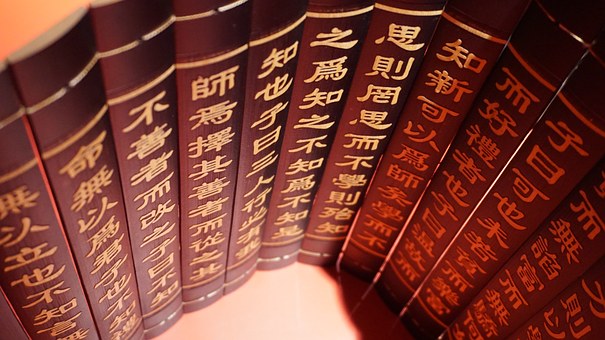 而無諂富而無
子曰可也未若
而好禮者也子曰溫故而
知新可以爲師矣學而不
思則罔思而不學則殆知
之爲知之不知爲不知是
知也子曰三人行必有我
師焉擇其善者而從之其
不善者而改之子曰不知
命無以爲君子也不知禮
無以立也不知言無